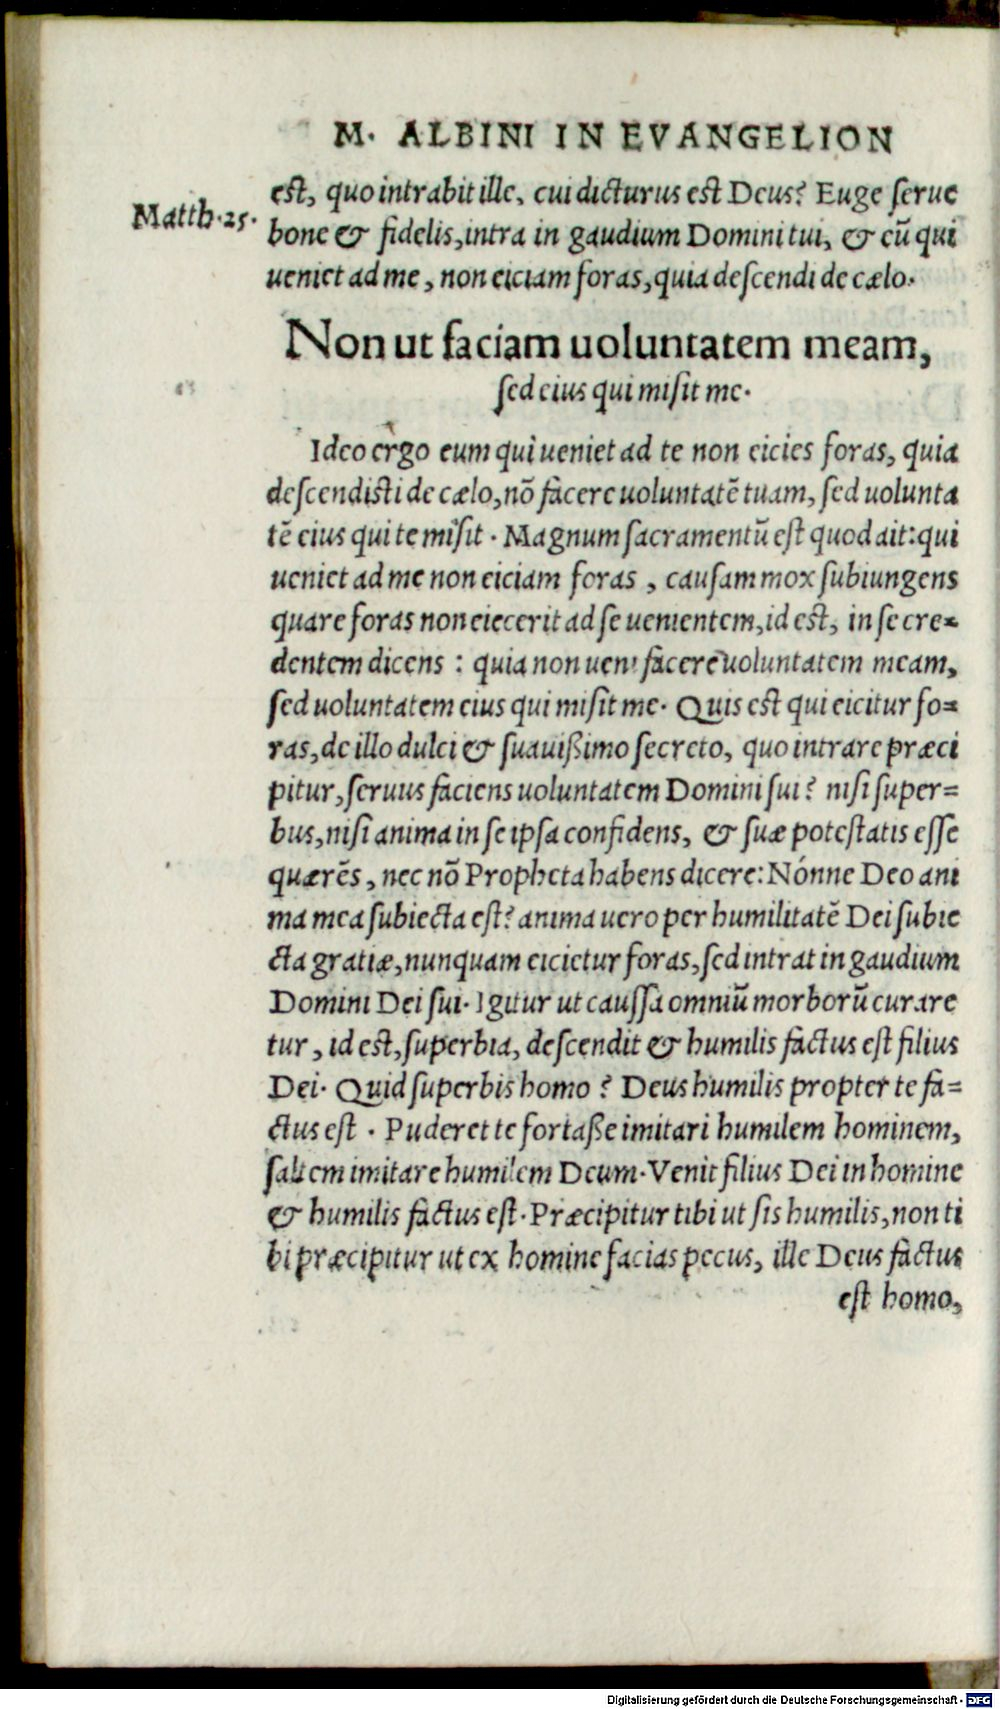 M. ALBINI IN EVANGELION
est, quo intrabit ille, cui dicturus est Deus? Euge serue
Matth.25.
bone & fidelis, intra in gaudium Domini tui, & cū qui
ueniet ad me, non eiciam foras, quia descendi de cælo.
Non ut faciam uoluntatem meam,
sed eius qui misit me.
Ideo ergo eum qui ueniet ad te non eicies foras, quia
descendisti de cælo, nō facere uoluntatē tuam, sed uolunta
tē eius qui te misit. Magnum sacramentū est quod ait: qui
ueniet ad me non eiciam foras, causam mox subiungens
quare foras non eiecerit ad se uenientem, id est, in se cre-
dentem dicens: quia non ueni facere uoluntatem meam,
sed uoluntatem eius qui misit me. Quis est qui eicitur fo=
ras, de illo dulci & suauißimo secreto, quo intrare præci
pitur, seruus faciens uoluntatem Domini sui? nisi super=
bus, nisi anima in se ipsa confidens, & suæ potestatis esse
quærēs, nec nō Propheta habens dicere: Nónne Deo ani
ma mea subiecta est? anima uero per humilitatē Dei subie
cta gratiæ, nunquam eicietur foras, sed intrat in gaudium
Domini Dei sui. Igitur ut caussa omniū morborū curare
tur, id est, superbia, descendit & humilis factus est filius
Dei. Quid superbis homo? Deus humilis propter te fa=
ctus est. Puderet te fortaße imitari humilem hominem,
saltem imitare humilem Deum. Venit filius Dei in homine
& humilis factus est. Præcipitur tibi ut sis humilis, non ti
bi præcipitur ut ex homine facias pecus, ille Deus factus
est homo,
Digitalisierung gefördert durch die Deutsche Forschungsgemeinschaft - DFG